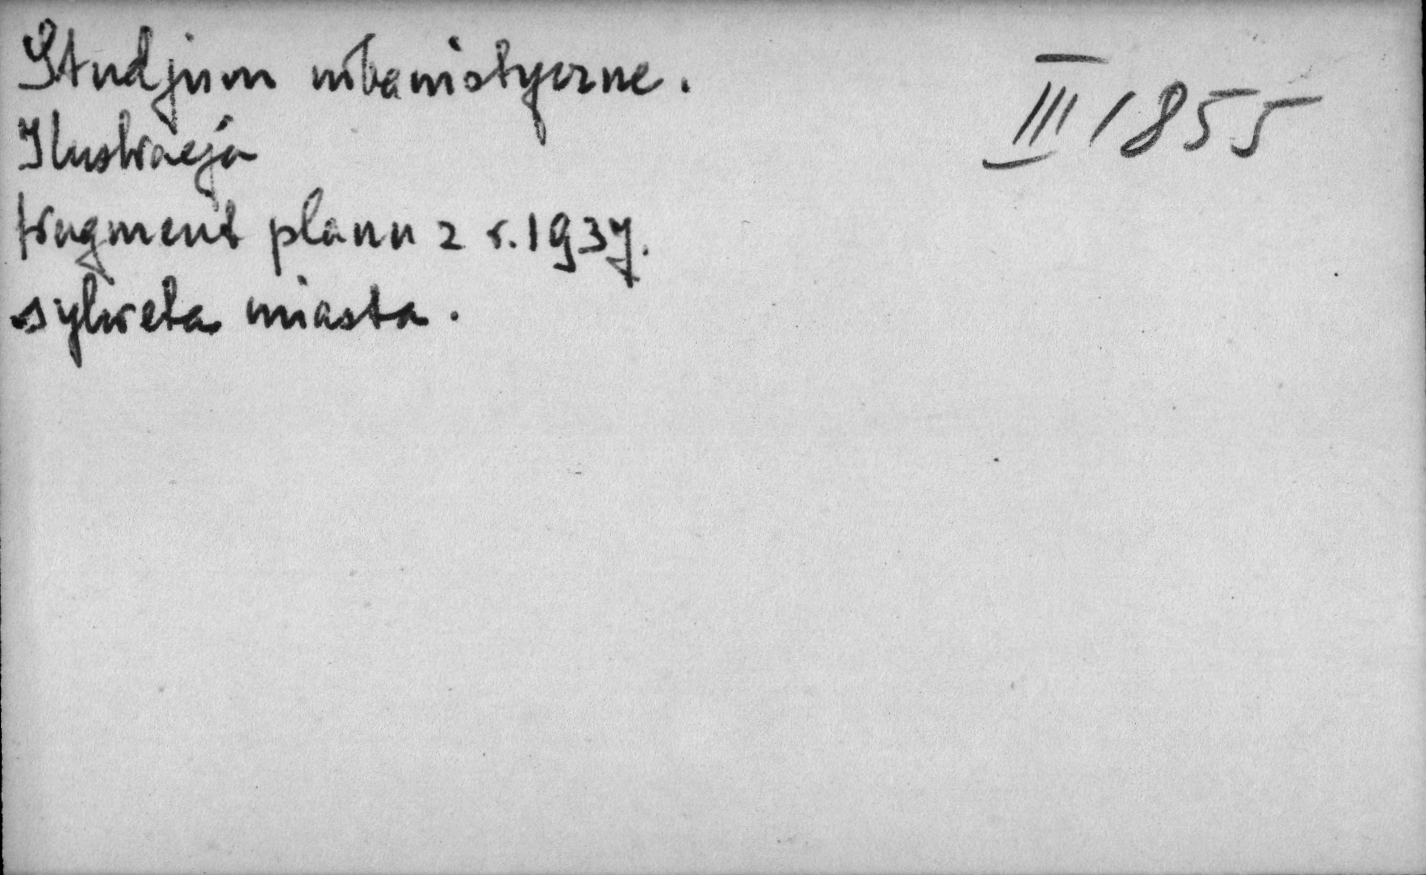 Studjum urbanistyczne.
III 1855
Ilustracja
fragment planu z r. 1937.
sylweta miasta.